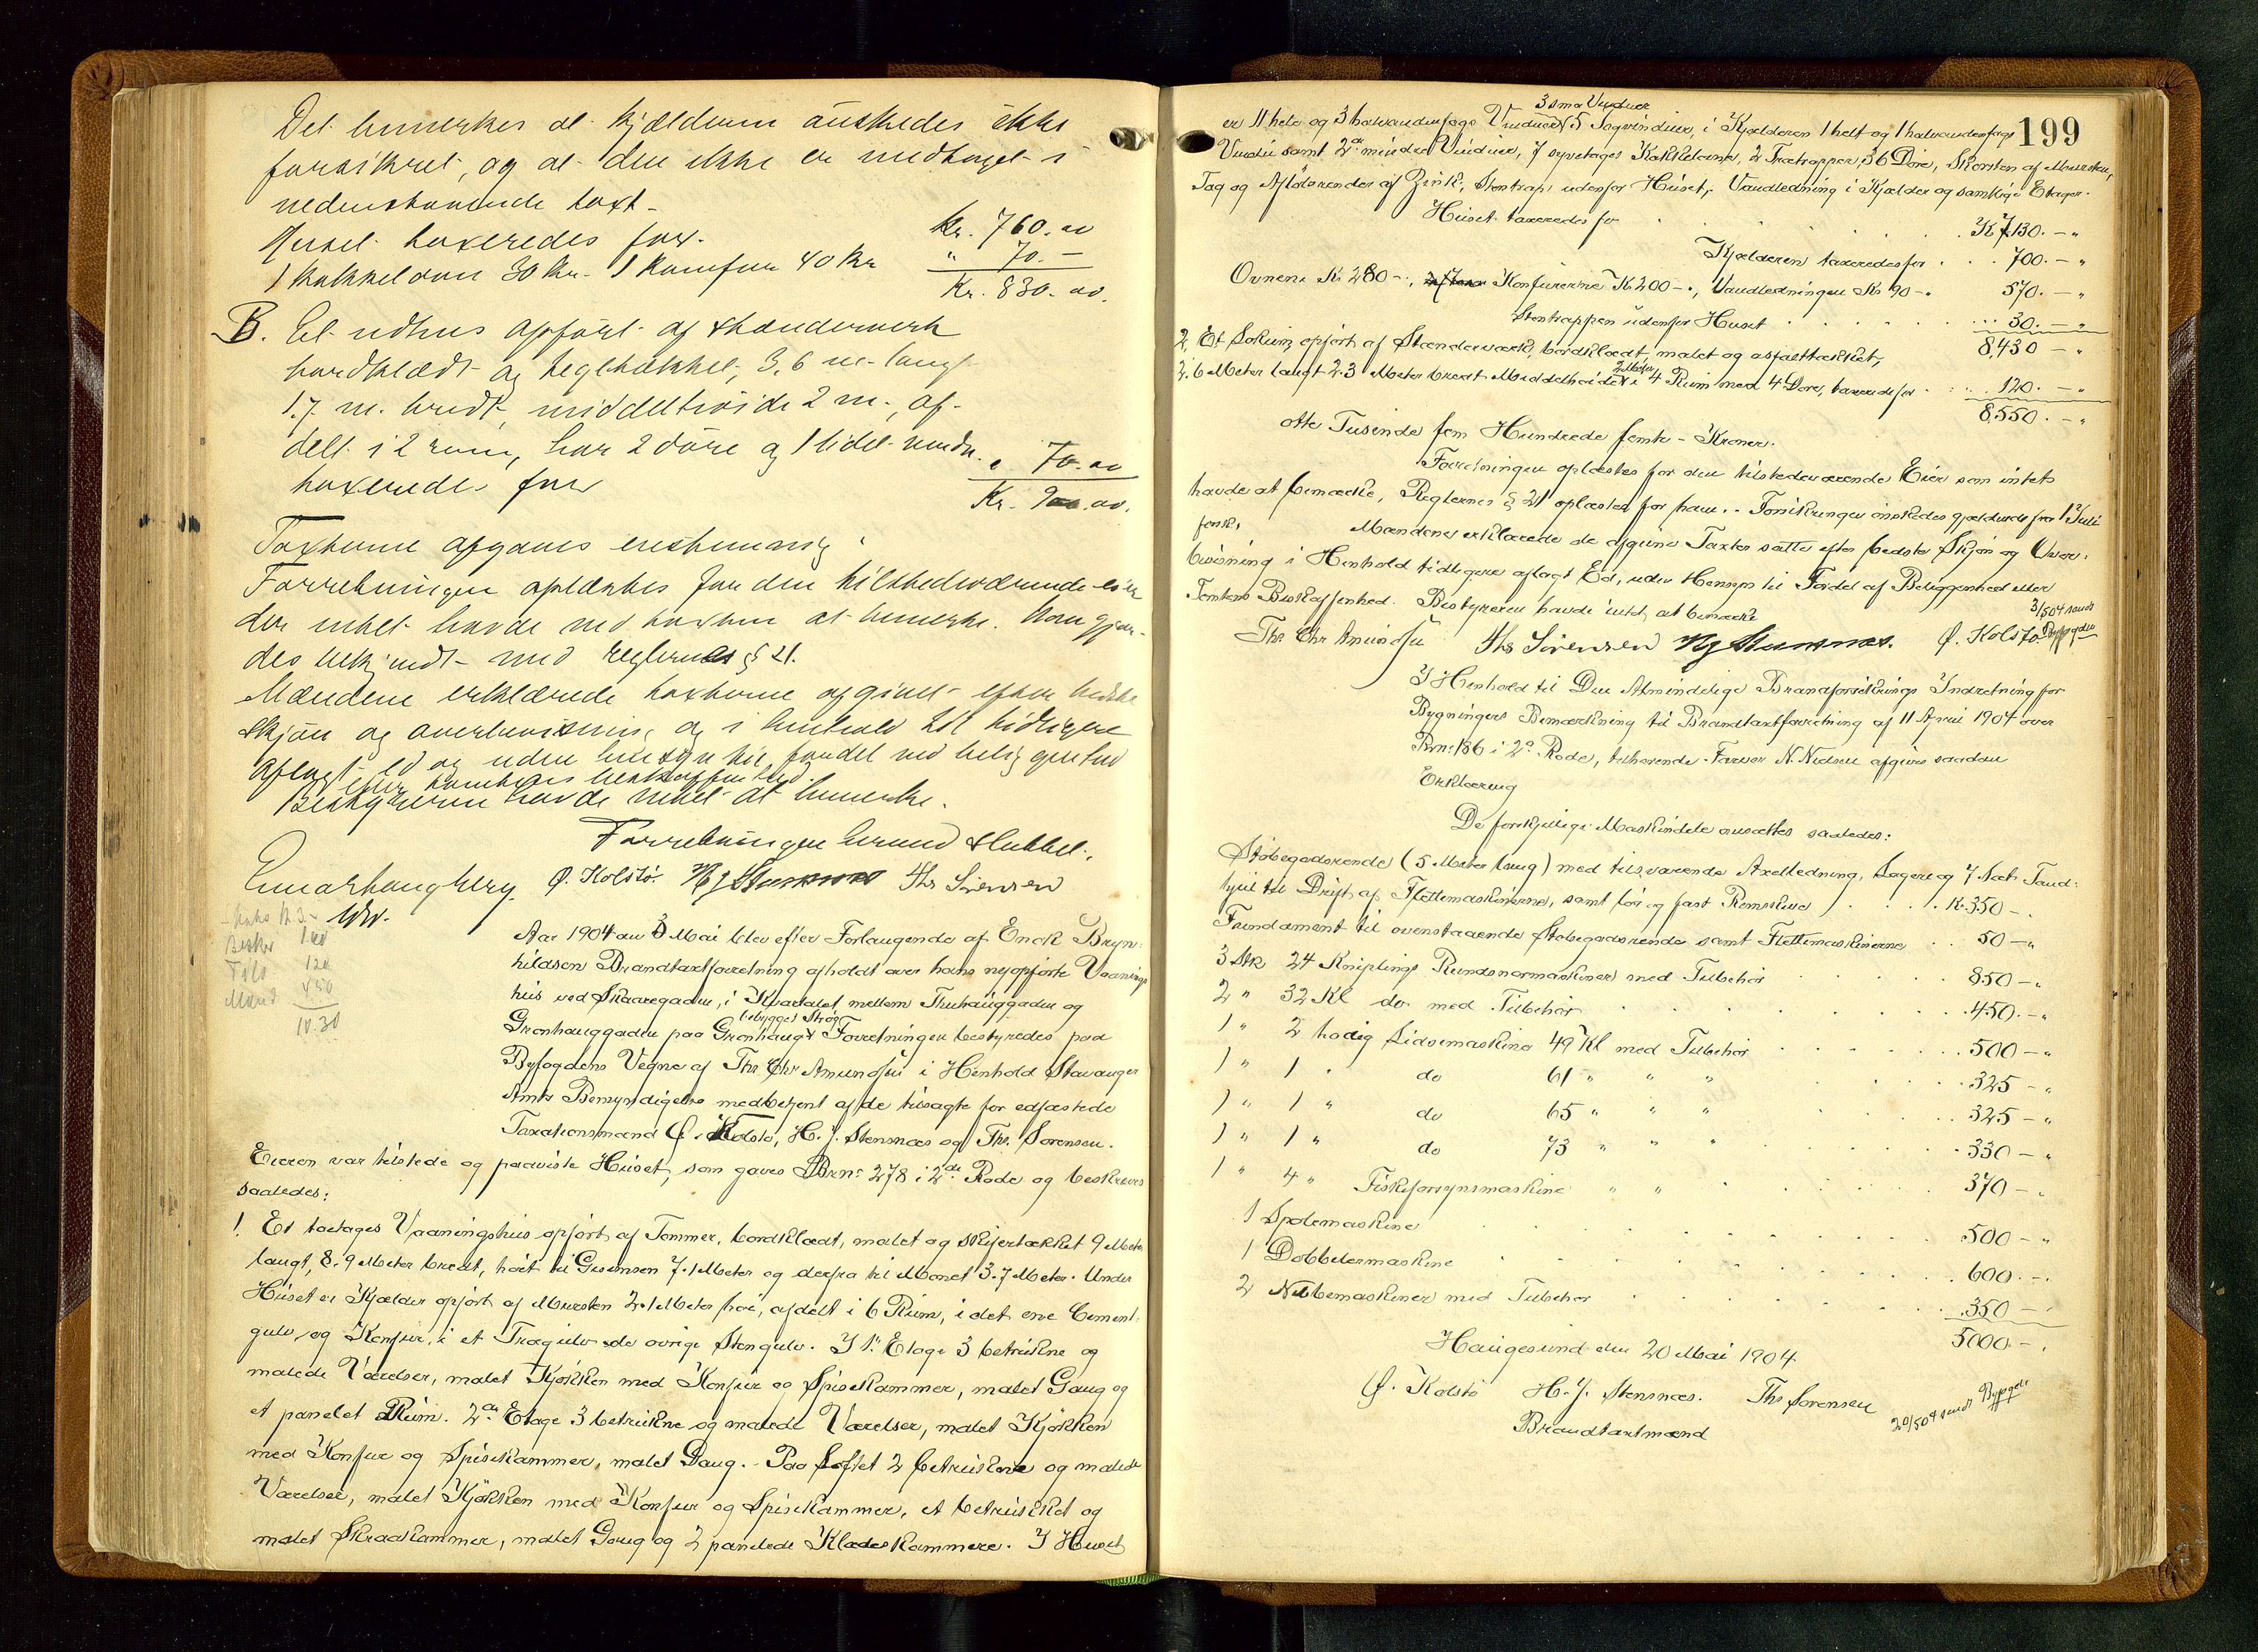 Det bemerkes at kjælderen önskedes ikke
forsikret, og at den ikke er medtaget i
nedenstaaende taxt.
Huset taxeredes for. Kr. 760.00
1 kakkelovn 30 Kr. 1 komfur 40 Kr " 70.–
Kr. 830.00.
B. Et udhus opført af stænderverk
bordklædt og teglhækket, 3,6 m. langt
1.7 m. bredt, middelhöide 2 m., af-
delt i 2 rum, har 2 döre og 1 lidet vindu.
taxeredes for " 70.00
Kr. 900.00.
Taxterne afgaves enstemmig.
Forretningen oplæstes for den tilstedeværende eier
der intet havde ved taxten at bemerke. Han gjor-
des bekjendt med reglernes § 21.
Mændene erklærede taxterne afgivet efter bedste
skjön og overbevisning og i henhold til tidligere
aflagt ed og uden hensyn til fordel ved beliggenhed
eller tomtens beskaffenhed.
Bestyreren havde intet at bemerke.
Forretningen herved sluttet.
Einar Haugberg. Ø. Kolstø. H J Stensnæs Ths Sørensen
Aar 1904 den 3 Mai blev efter Forlangende af Enok Bryn-
hildsen Brandtaxtforretning afholdt over hans nyopførte Vaanings
hus ved Skaaregaden, i Kvartalet mellem Thuhauggaden og
bebygget Strøg
Grønhauggaden paa Grønhaug. Forretningen bestyredes paa
Byfogdens Vegne af Ths Chr Amundsen i Henhold Stavanger
Amts Bemyndigelse medbetjent af de tilsagte for edfæstede
Taxationsmænd Ø. Kolstø, H. J. Stensnæs og Ths. Sørensen.
Eieren var tilstede og paaviste Huset, som gaves Brn: 278 i 2de Rode og beskreves
saaledes:
1. Et toetages Vaaningshus opført af Tømmer, bordklædt, malet og skifertækket 9 Meter
langt, 8.9 Meter bredt, høit til Gesimsen 7.1 Meter og derfra til Mønet 3.7 Meter. Under
Huset er Kjælder opført af Mursten 2.1 Meter høi, afdelt i 6 Rum, i det ene Cement-
gulv og Komfur, i et Trægulv de øvrige Stengulv. I 1: Etage 3 betrukne og
malede Værelser, malet Kjøkken med Komfur og Spisekammer, malet Gang og
et panelet Rum. 2de Etage 3 betrukne og malede Værelser, malet Kjøkken
med Komfur og Spisekammer, malet Gang. Paa Loftet 2 betrukne og malede
Værelser, malet Kjøkken med Komfur og Spisekammer, et betrukket og
malet Skraakammer, malet Gang og 2 panelede Klædeskammere. I Huset
199
3 smaa Vinduer
er 11 hele og 3 halvandenfags Vinduer 5 Tagvinduer, i Kjælderen 1 helt og 1 halvandenfags
Vindu samt 2de mindre Vinduer, 7 syvetages Kakkelovne, 2 Trætrapper, 36 Døre, Skorsten af Mursten,
Tag og Afløbsrender af Zink, Stentrap udenfor Huset, Vandledning i Kjælder og samtlige Etager.
Huset taxeredes for Kr 7130.–"
Kjælderen taxeredes for 700.–"
Ovnene Kr 280–, Komfurerne Kr 200–, Vandledningen Kr 90– 570.–"
Stentrappen udenfor Huset 30.–"
8,430–"
2, Et Sokrum, opført af Stænderværk, bordklædt, malet og asfalttækket,
2 Meter
2.6 Meter langt 2.3 Meter bredt Middelhøide i 4 Rum med 4 Døre, taxeredes for 120.–"
8,550.–"
otte Tusinde fem Hundrede femti – Kroner.
Forretningen oplæstes for den tilstedeværende Eier som intet
havde at bemærke, Reglernes § 21 oplæstes for ham. Forsikringen ønskedes gjældende fra 1 Juli
førstk. Mændene erklærede de afgivne Taxter satte efter bedste Skjøn og Over-
bevisning i Henhold tidligere aflagt Ed, uden Hensyn til Fordel af Beliggenhed eller
Tomtens Beskaffenhed. Bestyreren havde intet at bemærke
3/504 sendt
Byfogden
Ths Chr Amundsen Ths Sørensen H J Stensnæs. Ø. Kolstø
I Henhold til Den Almindelige Brandforsikrings Indretning for
Bygningers Bemærkning til Brandtaxtforretning af 11 April 1904 over
Brn: 186 i 2de Rode, tilhørende Farver N. Nielsen afgives saadan
Erklæring
De forskjellige Maskindele ansættes saaledes:
Støbegodsrende (5 Meter lang) med tilsvarende Axelledning, Lagere og 7 Sæt Tand-
hjul til Drift af Flettemaskinerne, samt løs og fast Remskive Kr. 350–.
Fundament til ovenstaaende Støbegodsrende samt Flettemaskinerne 50–"
3 Stk 24 Kniplings Rundsnormaskiner med Tilbehør 850–"
2 " 32 Kl do med Tilbehør 450.–"
1 " 2 hodig Lidsemaskine 49 Kl med Tilbehør 500–"
1 " 1 " do 61 " " " 325–"
1 " 1 " do 65 " " " 325–"
1 " 1 " do 73 " " " 330–"
1 " 4 " Fiskeforsynsmaskine " " 370–"
1 Spolemaskine 500–"
1 Doblermaskine 600.–"
2 Nøbbemaskiner med Tilbehør 350–"
5000–"
Haugesund den 20 Mai 1904
Ø. Kolstø H. J. Stensnæs. Ths Sørensen
Brandtaxtmænd
20/504 sendt Byfogde